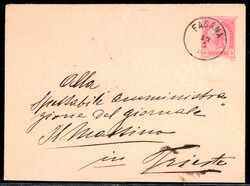 FASANA
Alla
Spettabile amministra
zione del giornale
Il Mattino
in Trieste